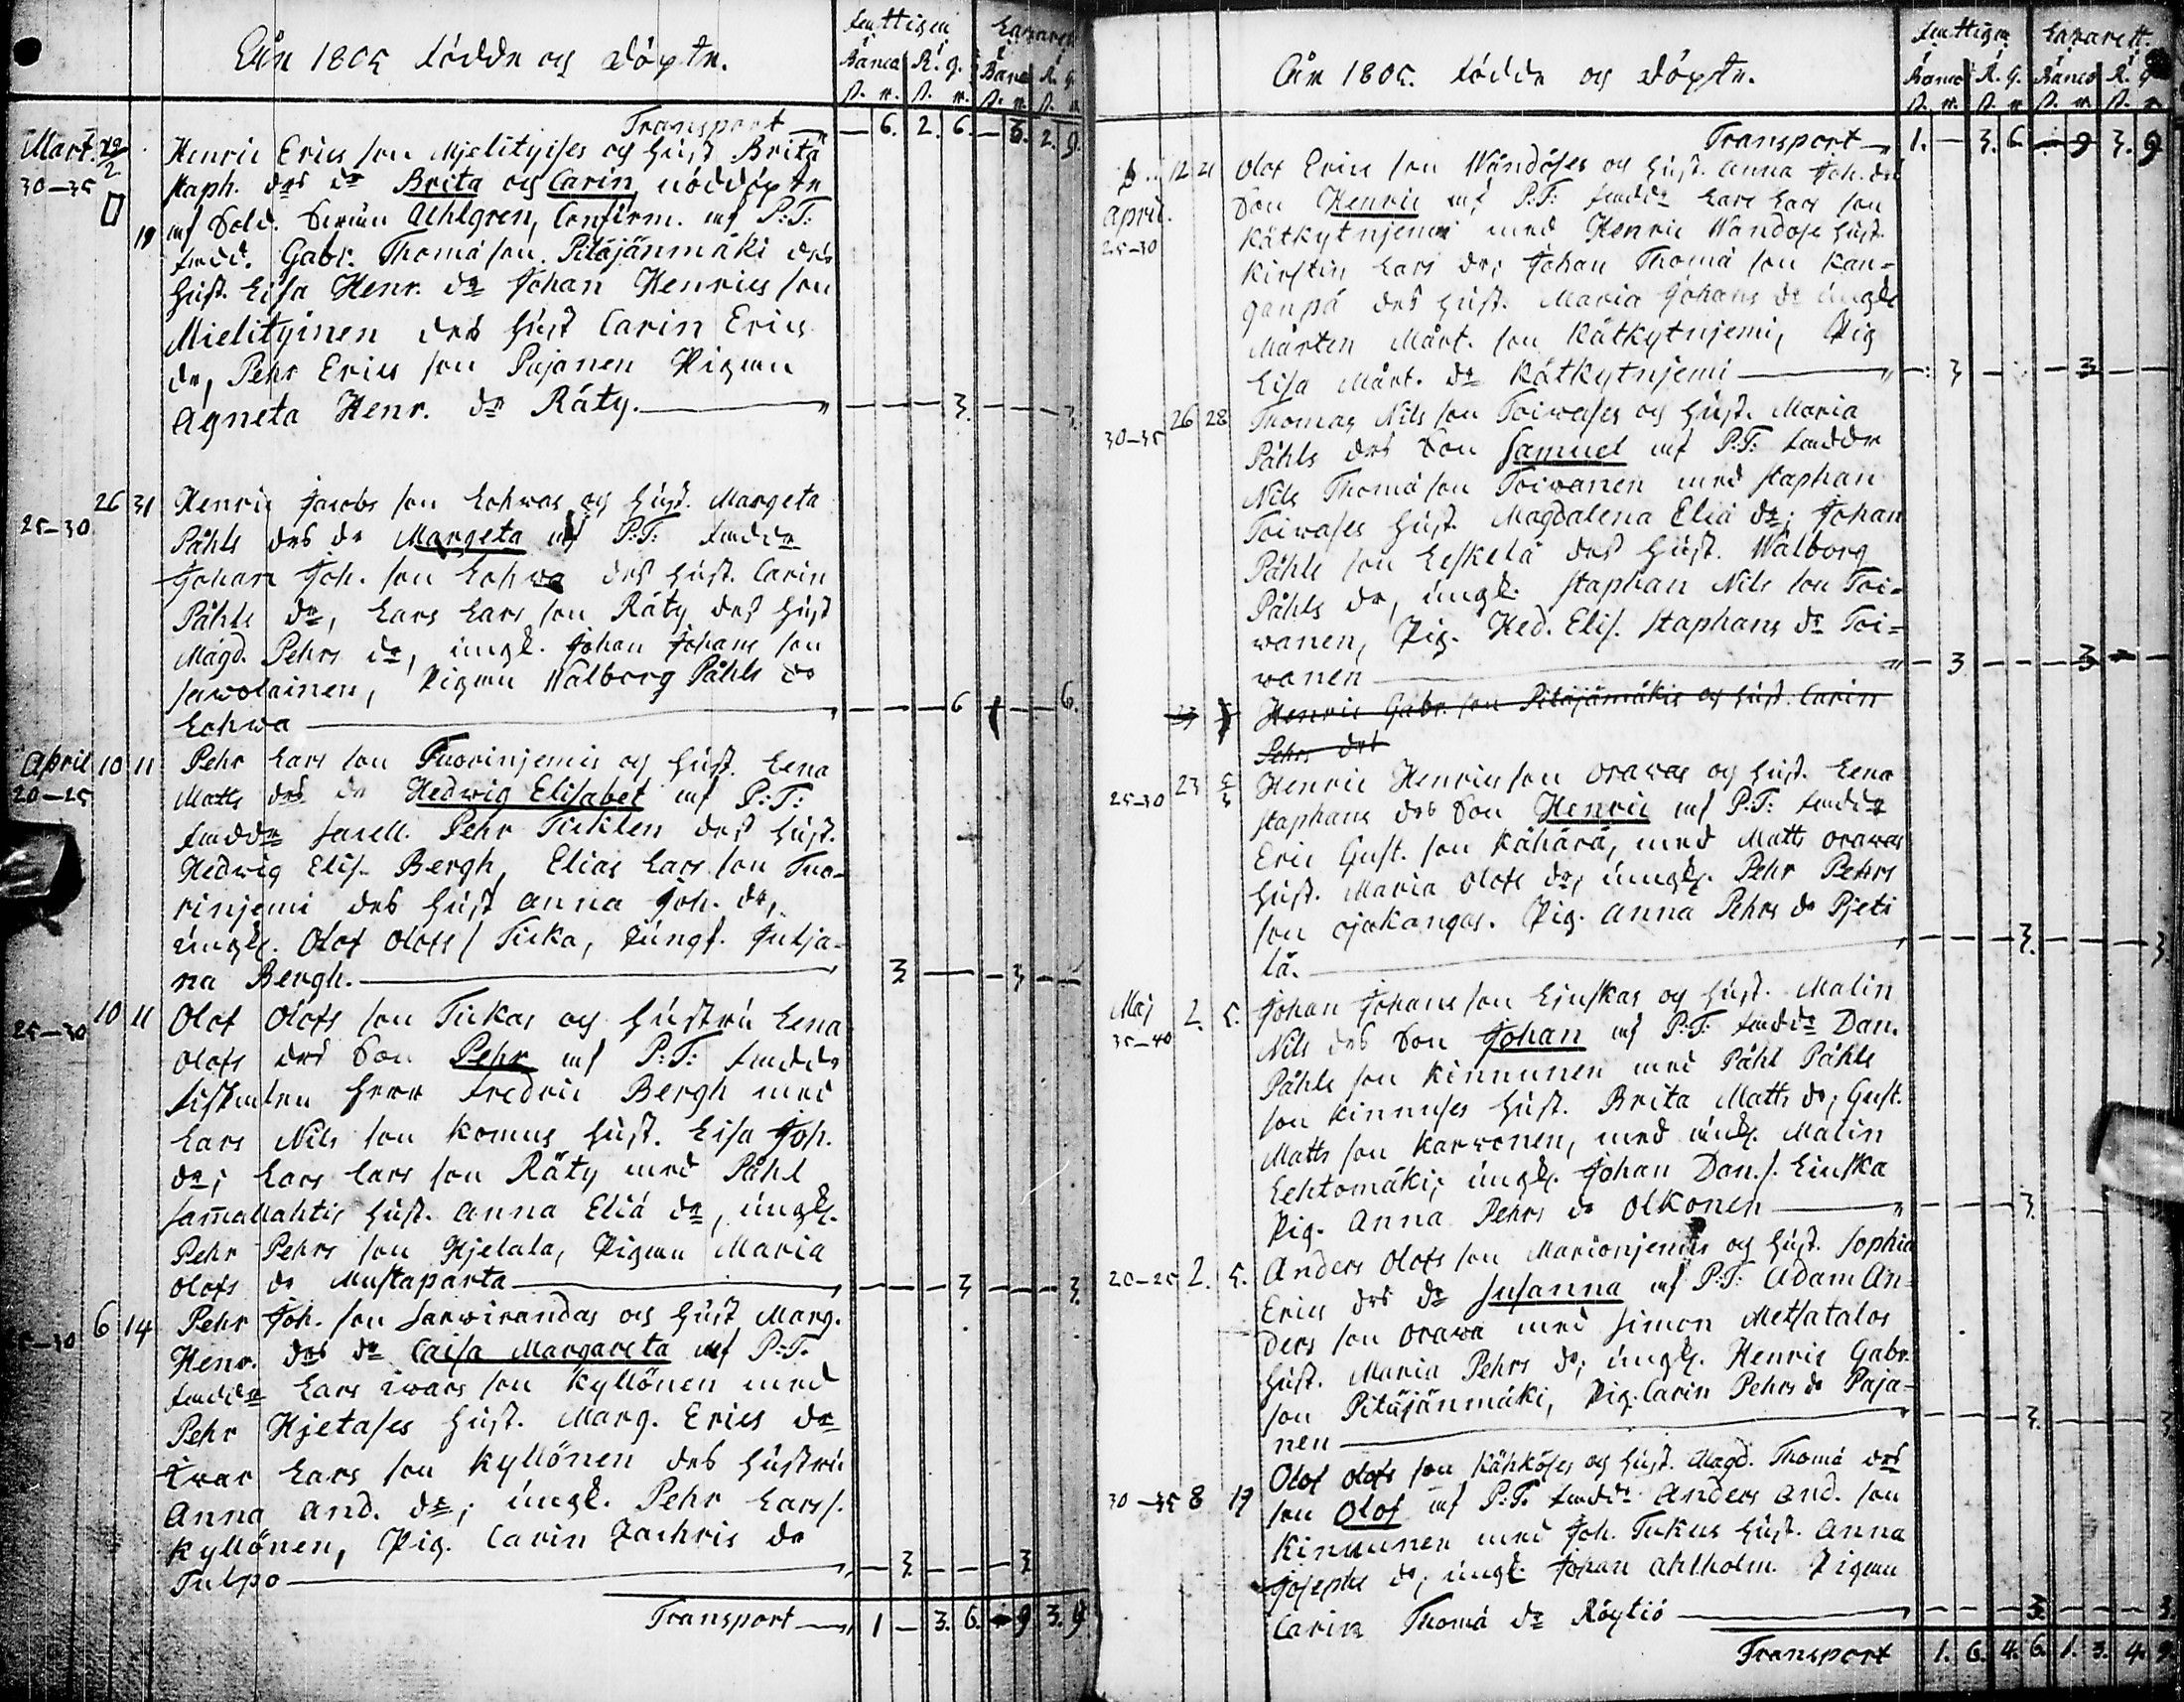 Åhr 1805 födde og döpte.
Fattigca Lazarett
Banco R. g. Banco R. g.
Transport — 6. 2. 6. — 6. 2. 9.
Mart. Henric Erics son Mjelityises og hust Brita
30-35 staph. dr dr Brita og Carin nöddöpte
19 af Sold. Ahlgren, Confirm. af P:T:
fadd. Gabr. Thomä son Pitäjänmäki des
hust. Lisa Henr. dr Johan Henrics son
Mielityinen des hust Carin Erics
dr, Pehr Erics son Pajanen Pigan
Agneta Henr. dr Räty. — 3. 3.
26 31 Henric Jacobs son Lohwas og hust. Margeta
25-30 Påhls dr dr Margeta af P:T: faddr
Johan Joh. son Lohwa des hust. Carin
Påhls dr, Lars Lars son Räty des hust
Magd. Pehrs dr, ungk. Johan Johans son
Sawolainen, Pigan Walborg Påhls dr
Lohwa — 6 6.
April 10 11 Pehr Lars son Tuorinjemis og hust. Lena
20-25 Matts dr dr Hedwig Elisabet af P:T:
faddr Pehr des hust.
Hedwig Elis. Bergh, Elias Lars son Tuo-
rinjemi des hust Anna Joh. dr,
ungk. Olof Olofs s Ticka, Jungf. Julja-
na Bergh. — 3 — 3 —
10 11 Olof Olofs son Tickas og hustru Lena
25-30 Olofs dr son Pehr af P:T: faddr
herr Fredric Bergh med
Lars Nils son Komus hust. Lisa Joh.
dr; Lars Lars son Räty med Påhl
Sam̄allahtis hust. Anna Eliä dr, ungk.
Pehr Pehrs son Hjelala, Pigan Maria
Olofs dr Mustaparta — 3 3.
6 14 Pehr Joh. son Sarwirandas og hust Marg.
5-30 Henr. dr dr Caisa Margareta af P:T.
faddr Lars Ivars son Kyllönen med
Pehr Hjetases hust. Marg. Erics dr
Ivar Lars son Kyllönen des hustru
Anna And. dr; ungk. Pehr Lars s.
Kyllönen, Pig. Carin Zachris dr
Tulpo — 3 — 3
Transport — 1 — 3. 6. — 9 3. 9.
Åhr 1805. födde og döpte.
Fattigca Lazarett.
Banco R. g. Banco R. g.
Transport 1. — 3. 6 — 9 3. 9
12 21 Olof Erics son Wändöses og hust. Anna Joh. dr
April. Son Henric af P:T: faddr Lars Lars son
25-30 Kätkytnjemi med Henric Wändöse hust.
Kirstin Lars dr; Johan Thomä son Kan-
ganpä des hust. Maria Johans dr ungk
Mårten Mårt. son Kätkytnjemi, Pig
Lisa Mårt. dr Kätkytnjemi — 3 — 3 —
26 28 Thomas Nils son Toiwases og hust. Maria
30-35 Påhls dr son Samuel af P:T: faddr
Nils Thomä son Toiwanen med staphan
Toiwases hust. Magdalena Eliä dr; Johan
Påhls son Leskelä des hust. Walborg
Påhls dr, ungk. staphan Nils son Toi-
wanen, Pig. Hed. Elis. staphans dr Toi-
wanen — 3 — 3 —
Henric Gabr. son Pitäjänmäkis og hust. Carin
Pehrs dr
25-30 23 Henric Henrics son Orawas og hust. Lena
staphans dr Son Henric af P:T: faddr
Eric Gust. son Kähärä, med Matts Orawas
hust. Maria Olofs dr; ungk. Pehr Pehrs
son Ojakangas. Pig. Anna Pehrs dr Pjeti
lä. — 3. 3
Maj 2. 5. Johan Johans son Linskas og hust. Malin
35-40 Nils dr Son Johan af P:T: faddr Dan.
Påhls son Kinnunen med Påhl Påhls
son Kinnuses hust. Brita Matts dr; Gust.
Matts son Karwonen, med Malin
Lehtomäki; ungk. Johan Dan. s. Linska
Pig. Anna Pehrs dr Olkonen — 3.
20-25 2. 5. Anders Olofs son Marionjemis og hust. Sophia
Erics dr dr Susanna af P:T: Adam An-
ders son Orawa med Simon Metsatalos
hust. Maria Pehrs dr; ungk. Henric Gabr.
son Pitäjänmäki, Pig. Carin Pehrs dr Paja-
nen — 3. 3
Olof Olofs son Kähköses og hust. Magd. Thomä dr
30-35 8 19 son Olof af P:T. faddr Anders And. son
Kinnunen med Joh. Tickus hust. Anna
Josephs dr; ungk. Johan Ahlholm. Pigan
Carin Thomä dr Röytiö — 3. 3.
Transport 1. 6. 4. 6. 1. 3. 4. 9